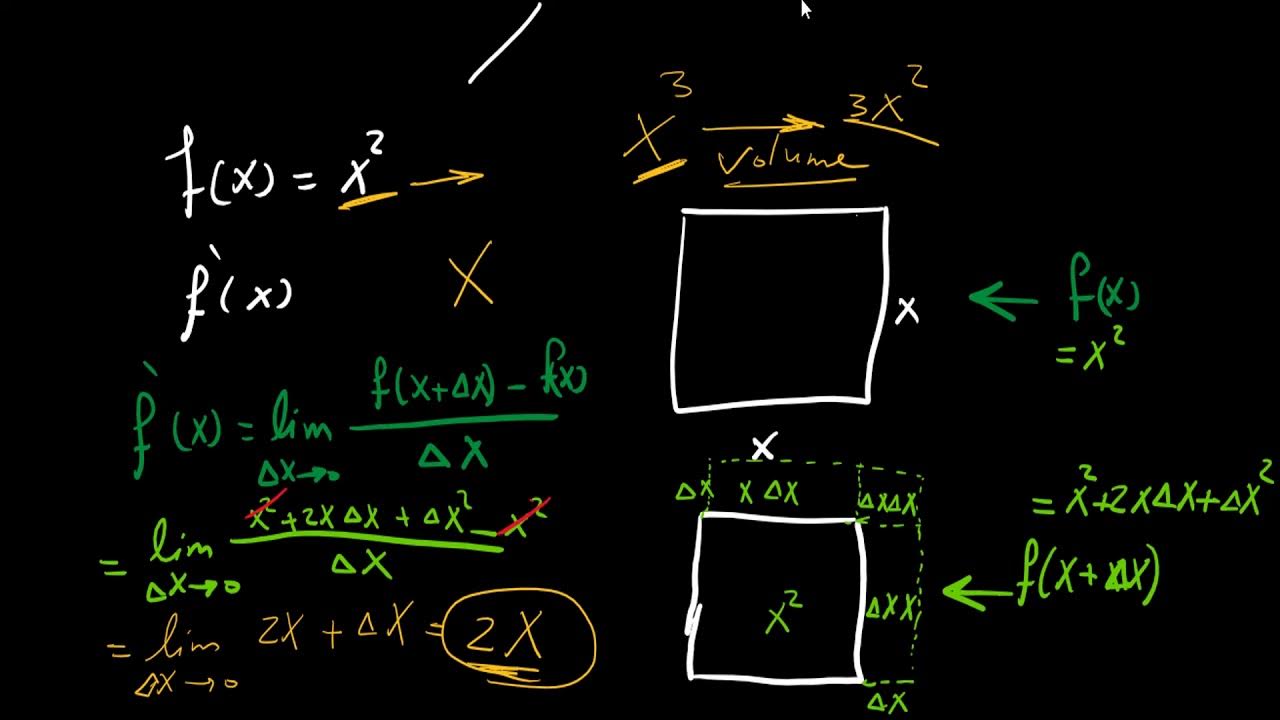 x³ → 3x²
volume
f(x) = x² →
f`(x) X
x
← f(x)
= x²
x
f`(x) = lim Δx→0 (f(x+Δx) − f(x)) / Δx
= lim Δx→0 (x² + 2xΔx + Δx² − x²) / Δx
= lim Δx→0 2x + Δx = 2x
Δx x Δx ΔxΔx
x² Δx x
Δx
= x² + 2xΔx + Δx²
← f(x+Δx)